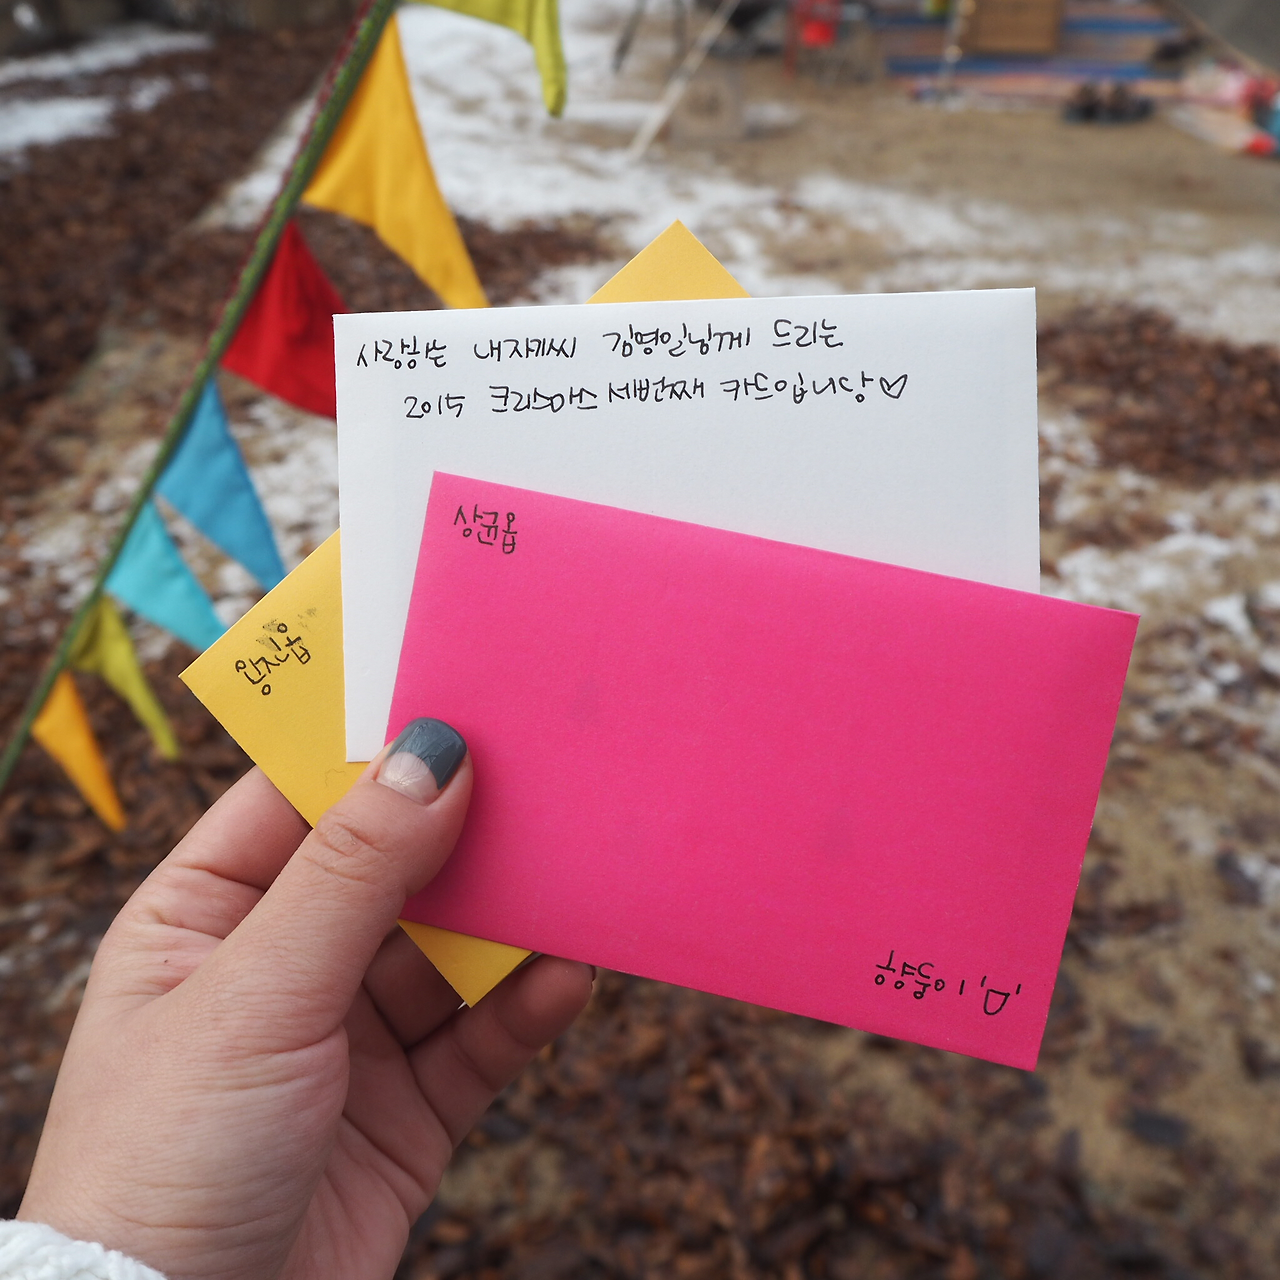 사랑하는 내자기씨 김영일님께 드리는
2015 크리스마스 세번째 카드입니당♡
상균옵